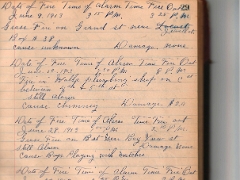 Date of Fire Time of Alarm Time Fire Out
June 9 1913 9 15 P.M. 9 25 P.M.
Grass Fire on Grand st near
Box # 38
cause unknown Damage none
Date of Fire Time of Alarm Time Fire Out
June 19, 1913 P.M. 8 P.M.
Fire in Wolfe plumbing shop on E st
between 4 & 5th st
still Alarm
cause chimney Damage $20
Date of Fire Time of Alarm Time Fire out
June 28 1913 P.M. P.M.
Fire on
still Alarm Damage none
cause Boys Playing with matches
Date of Fire Time of Alarm Time Fire Out
P.M.